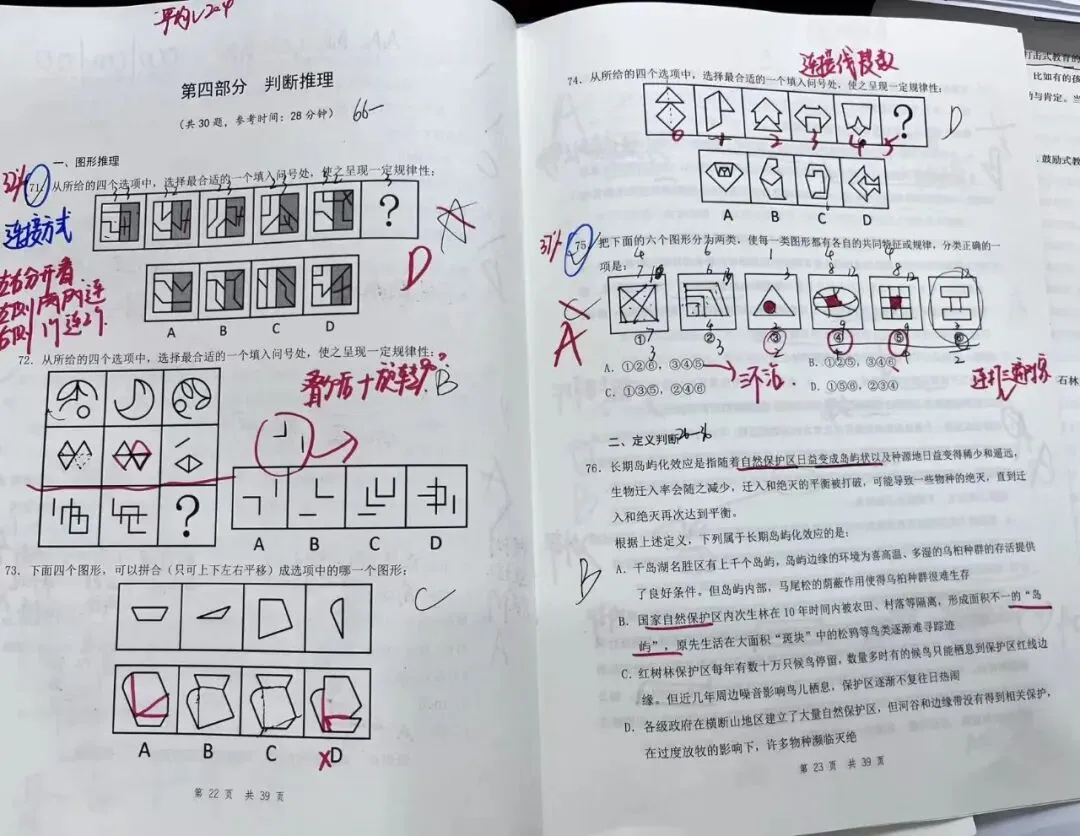 平均
第四部分 判断推理
（共 30 题，参考时间：28 分钟）
66
一、图形推理
71. 从所给的四个选项中，选择最合适的一个填入问号处，使之呈现一定规律性：
?
连接方式
D
左右分开看
A B C D
72. 从所给的四个选项中，选择最合适的一个填入问号处，使之呈现一定规律性：
B
?
A B C D
73. 下面四个图形，可以拼合（只可上下左右平移）成选项中的哪一个图形：
C
A B C D
第 22 页 共 39 页
连接线段数
74. 从所给的四个选项中，选择最合适的一个填入问号处，使之呈现一定规律性：
?
D
0 1 2 3 4 5
A B C D
75. 把下面的六个图形分为两类，使每一类图形都有各自的共同特征或规律，分类正确的一
项是：
① ② ③ ④ ⑤ ⑥
A
A. ①②⑥，③④⑤ B. ①②⑤，③④⑥
C. ①③⑤，②④⑥ D. ①⑤⑥，②③④
二、定义判断
76. 长期岛屿化效应是指随着自然保护区日益变成岛屿状以及种源地日益变得稀少和遥远，
生物迁入率会随之减少，迁入和绝灭的平衡被打破，可能导致一些物种的绝灭，直到迁
入和绝灭再次达到平衡。
根据上述定义，下列属于长期岛屿化效应的是：
B
A. 千岛湖名胜区有上千个岛屿，岛屿边缘的环境为喜高温、多湿的乌桕种群的存活提供
了良好条件，但岛屿内部，马尾松的荫蔽作用使得乌桕种群很难生存
B. 国家自然保护区内次生林在 10 年时间内被农田、村落等隔离，形成面积不一的“岛
屿”，原先生活在大面积“斑块”中的松鸦等鸟类逐渐难寻踪迹
C. 红树林保护区每年有数十万只候鸟停留，数量多时有的候鸟只能栖息到保护区红线边
缘。但近几年周边噪音影响鸟儿栖息，保护区逐渐不复往日热闹
D. 各级政府在横断山地区建立了大量自然保护区，但河谷和边缘带没有得到相关保护，
在过度放牧的影响下，许多物种濒临灭绝
第 23 页 共 39 页
打击式教育的
比如有的孩
与肯定。当
鼓励式教
石林